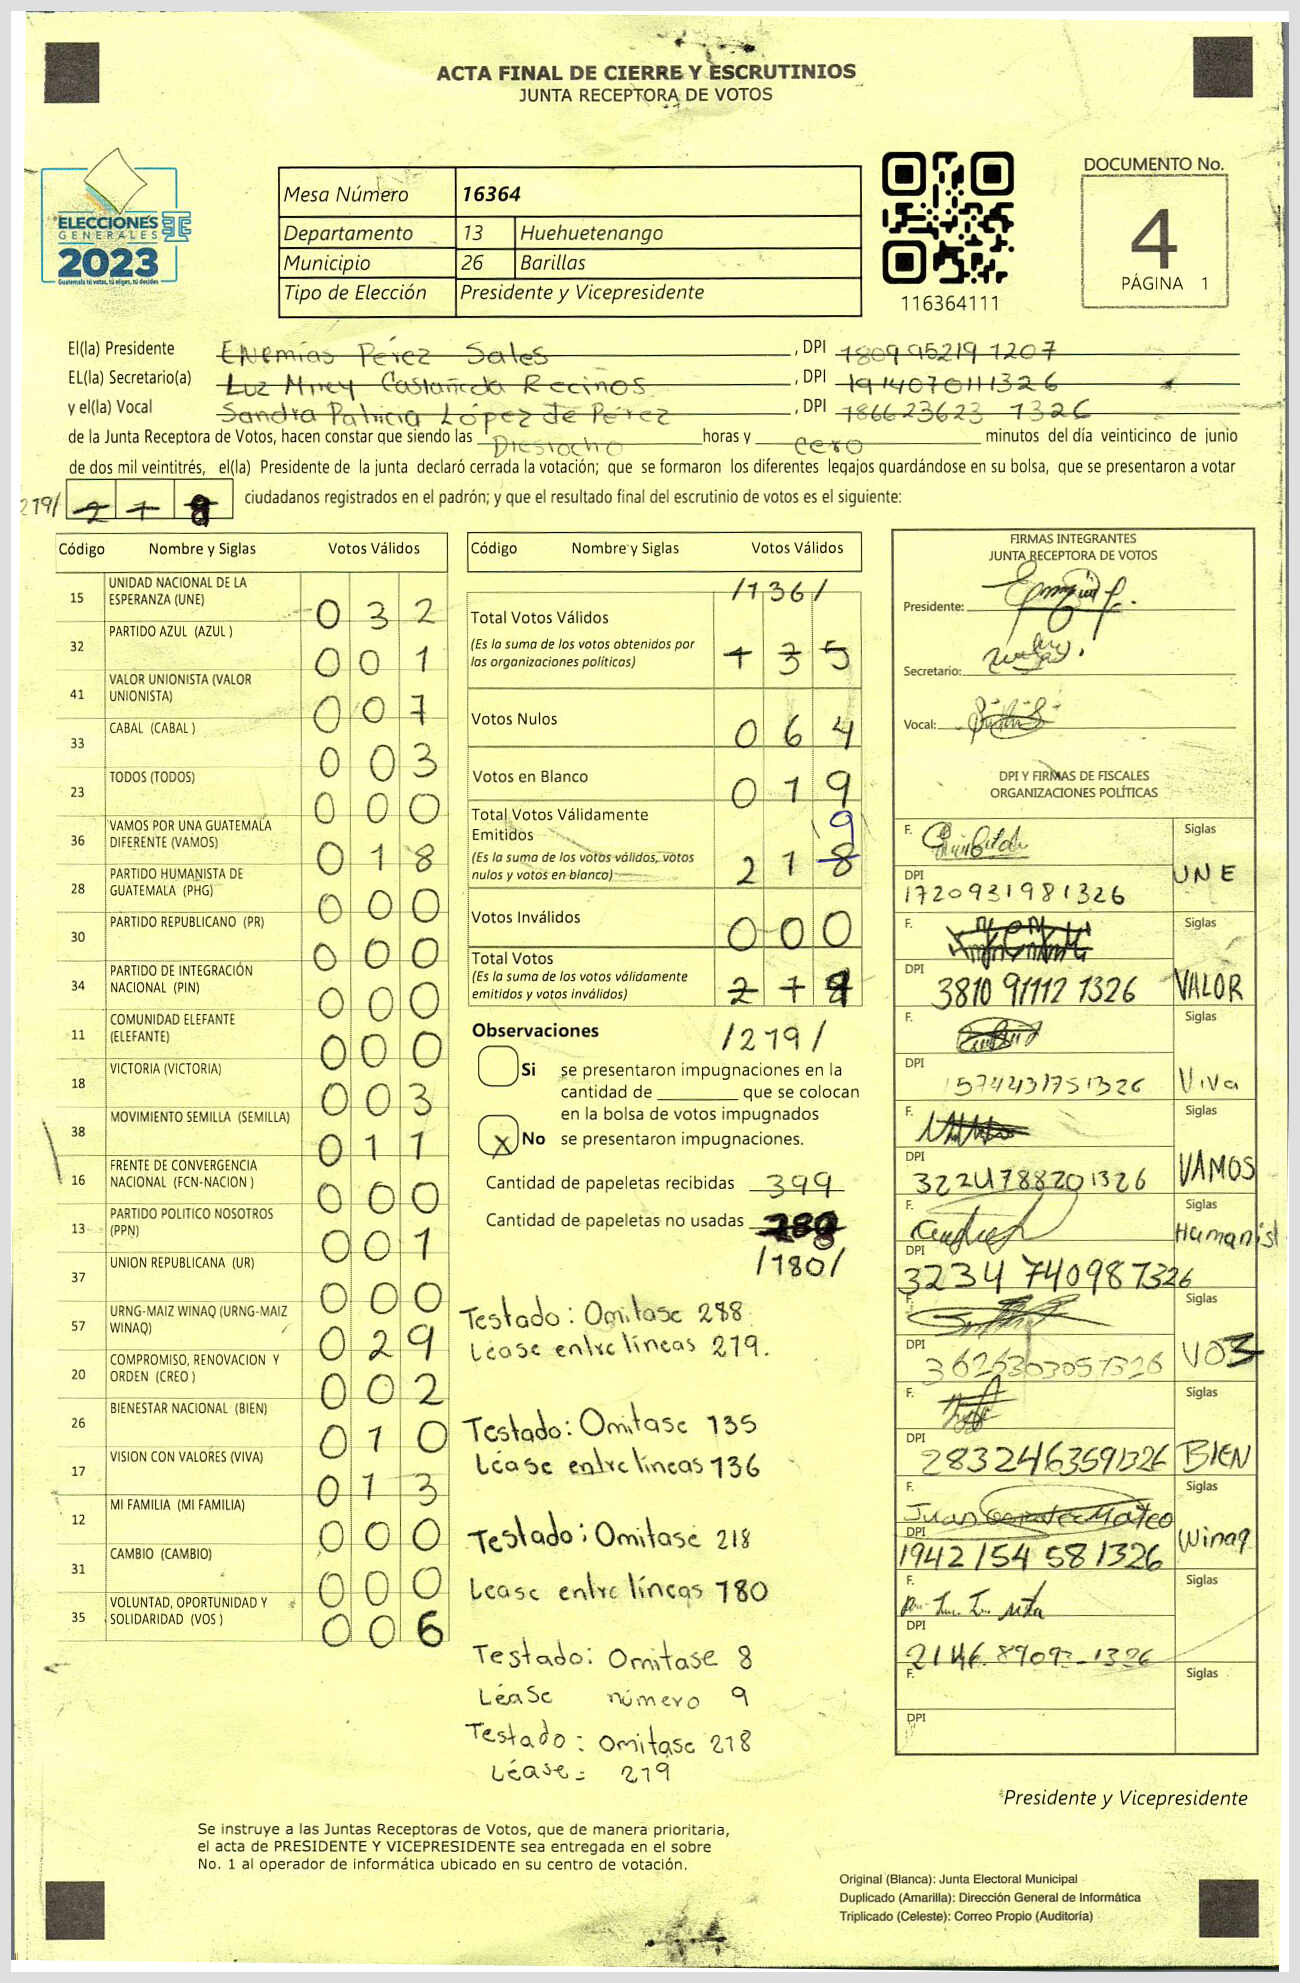 ACTA FINAL DE CIERRE Y ESCRUTINIOS
JUNTA RECEPTORA DE VOTOS
ELECCIONES
GENERALES
2023
Guatemala tú votas, tú eliges, tú decides
Mesa Número 16364
Departamento 13 Huehuetenango
Municipio 26 Barillas
Tipo de Elección Presidente y Vicepresidente
116364111
DOCUMENTO No.
4
PÁGINA 1
El(la) Presidente Enemías Pérez Sales, DPI 1809952191207
EL(la) Secretario(a) Luz Mirey Castañeda Recinos, DPI 1914070111326
y el(la) Vocal Sandra Patricia López de Pérez, DPI 186623623 1326
de la Junta Receptora de Votos, hacen constar que siendo las Dieciocho horas y cero minutos del día veinticinco de junio
de dos mil veintitrés, el(la) Presidente de la junta declaró cerrada la votación; que se formaron los diferentes legajos guardándose en su bolsa, que se presentaron a votar
219/ ciudadanos registrados en el padrón; y que el resultado final del escrutinio de votos es el siguiente:
Código Nombre y Siglas Votos Válidos
15 UNIDAD NACIONAL DE LA ESPERANZA (UNE) 032
32 PARTIDO AZUL (AZUL ) 001
41 VALOR UNIONISTA (VALOR UNIONISTA) 007
33 CABAL (CABAL ) 003
23 TODOS (TODOS) 000
36 VAMOS POR UNA GUATEMALA DIFERENTE (VAMOS) 018
28 PARTIDO HUMANISTA DE GUATEMALA (PHG) 000
30 PARTIDO REPUBLICANO (PR) 000
34 PARTIDO DE INTEGRACIÓN NACIONAL (PIN) 000
11 COMUNIDAD ELEFANTE (ELEFANTE) 000
18 VICTORIA (VICTORIA) 003
38 MOVIMIENTO SEMILLA (SEMILLA) 011
16 FRENTE DE CONVERGENCIA NACIONAL (FCN-NACION ) 000
13 PARTIDO POLITICO NOSOTROS (PPN) 001
37 UNION REPUBLICANA (UR) 000
57 URNG-MAIZ WINAQ (URNG-MAIZ WINAQ) 029
20 COMPROMISO, RENOVACION Y ORDEN (CREO ) 002
26 BIENESTAR NACIONAL (BIEN) 010
17 VISION CON VALORES (VIVA) 013
12 MI FAMILIA (MI FAMILIA) 000
31 CAMBIO (CAMBIO) 000
35 VOLUNTAD, OPORTUNIDAD Y SOLIDARIDAD (VOS ) 006
Código Nombre y Siglas Votos Válidos
/136/
Total Votos Válidos
(Es la suma de los votos obtenidos por
las organizaciones políticas) 135
Votos Nulos 064
Votos en Blanco 019
Total Votos Válidamente
Emitidos 9
(Es la suma de los votos válidos, votos
nulos y votos en blanco) 218
Votos Inválidos 000
Total Votos
(Es la suma de los votos válidamente
emitidos y votos inválidos)
/219/
Observaciones
Si se presentaron impugnaciones en la
cantidad de ________ que se colocan
en la bolsa de votos impugnados
X No se presentaron impugnaciones.
Cantidad de papeletas recibidas 399
Cantidad de papeletas no usadas
/180/
Testado: Omitase 288
Léase entre líneas 219.
Testado: Omitase 135
Léase entre líneas 136
Testado: Omitase 218
Léase entre líneas 180
Testado: Omitase 8
Léase número 9
Testado: Omitase 218
Léase= 219
FIRMAS INTEGRANTES
JUNTA RECEPTORA DE VOTOS
Presidente:
Secretario:
Vocal:
DPI Y FIRMAS DE FISCALES
ORGANIZACIONES POLÍTICAS
F. Siglas
DPI 1720931981326 UNE
F. Siglas
DPI 3810 91112 1326 VALOR
F. Siglas
DPI 1574431751326 Viva
F. Siglas
DPI 3224788201326 VAMOS
F. Siglas
DPI 3234 740987326 Humanist
F. Siglas
DPI 3625303051326 VOS
F. Siglas
DPI 2832463591326 BIEN
F. Juan Mateo Siglas
DPI 1942154 581326 Winaq
F. Siglas
DPI 2146 89093 1326
F. Siglas
DPI
Presidente y Vicepresidente
Se instruye a las Juntas Receptoras de Votos, que de manera prioritaria,
el acta de PRESIDENTE Y VICEPRESIDENTE sea entregada en el sobre
No. 1 al operador de informática ubicado en su centro de votación.
Original (Blanca): Junta Electoral Municipal
Duplicado (Amarilla): Dirección General de Informática
Triplicado (Celeste): Correo Propio (Auditoría)